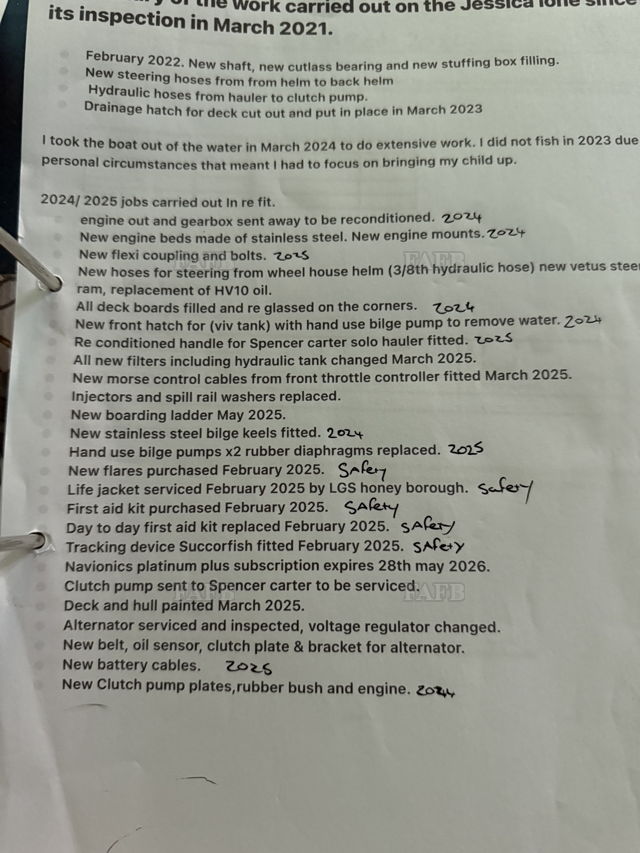 of the work carried out on the Jessica Ione since
its inspection in March 2021.
February 2022. New shaft, new cutlass bearing and new stuffing box filling.
New steering hoses from from helm to back helm
Hydraulic hoses from hauler to clutch pump.
Drainage hatch for deck cut out and put in place in March 2023
I took the boat out of the water in March 2024 to do extensive work. I did not fish in 2023 due
personal circumstances that meant I had to focus on bringing my child up.
2024/ 2025 jobs carried out In re fit.
engine out and gearbox sent away to be reconditioned. 2024
New engine beds made of stainless steel. New engine mounts. 2024
New flexi coupling and bolts. 2025
New hoses for steering from wheel house helm (3/8th hydraulic hose) new vetus stee
ram, replacement of HV10 oil.
All deck boards filled and re glassed on the corners. 2024
New front hatch for (viv tank) with hand use bilge pump to remove water. 2024
Re conditioned handle for Spencer carter solo hauler fitted. 2025
All new filters including hydraulic tank changed March 2025.
New morse control cables from front throttle controller fitted March 2025.
Injectors and spill rail washers replaced.
New boarding ladder May 2025.
New stainless steel bilge keels fitted. 2024
Hand use bilge pumps x2 rubber diaphragms replaced. 2025
New flares purchased February 2025. SAfety
Life jacket serviced February 2025 by LGS honey borough. Safety
First aid kit purchased February 2025. SAfety
Day to day first aid kit replaced February 2025. SAfety
Tracking device Succorfish fitted February 2025. SAfety
Navionics platinum plus subscription expires 28th may 2026.
Clutch pump sent to Spencer carter to be serviced.
FAFB FAFB
Deck and hull painted March 2025.
Alternator serviced and inspected, voltage regulator changed.
New belt, oil sensor, clutch plate & bracket for alternator.
New battery cables. 2025
New Clutch pump plates,rubber bush and engine. 2024